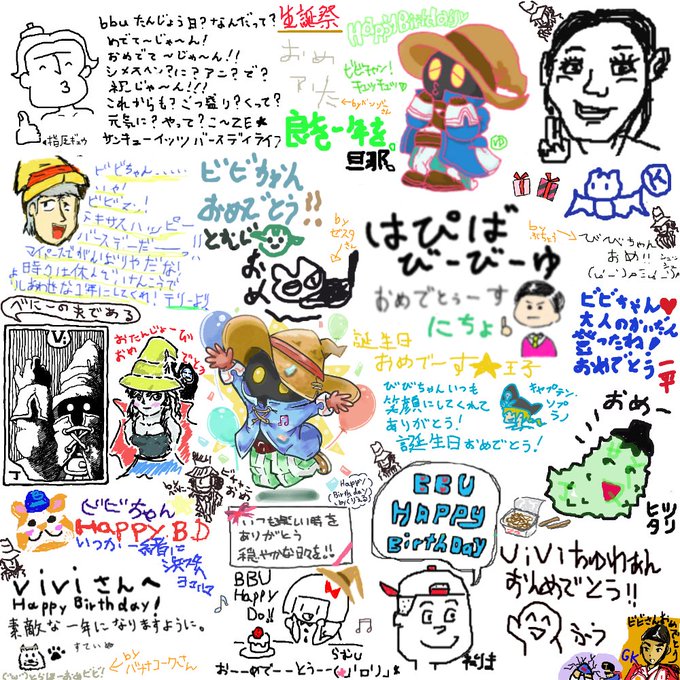 bbu たんじょう日?なんだって?
めでて〜じゃ〜ん!
おめでてて〜じゃ〜ん!!
これからも?ごっ盛り?くって?
元気に?やって?こ〜ZE★
サンキューイッツ バースデイライフ
生誕祭
おめ
Happy Birthday
ビビチャン!
チュッチュッ♡
良き一年を。
旦那。
K
ビビちゃん.....
テキサスハッピー
バースデーだー
マイペースでがんばりやだな!
時々は休んで、けんこうで
しあわせな1年にしてくれ!テリーより
ビビちゃん
おめでとう!!
とむじい
おめ
by
ゼスタ
さん
はぴば
びーびーゆ
by
びびちゃん
おめ!!
おめでとぅーす
にちょ
ビビちゃん♥
大人のおいなん
登ったね!
おめでとう
一平
べにーの夫である
Vi
J
おたんじょーび
おめでとう
誕生日
おめでーす★王子
びびちゃんいつも
笑顔にしてくれて
ありがとう!
誕生日おめでとう!
キャプテン
ソプラノ
おめー
ヒツ
タリ
Happy
Birthday
ビビちゃん
HAPPY B.D
いつか一緒に
いつも楽しい時を
ありがとう
穏やかな日々を!!
BBU
HAPPY
BirthDAY
ViViちゅわぁん
おめでとう!!
viviさんへ
Happy Birthday!
素敵な一年になりますように。
すてぃや
by
バナナコークさん
BBU
Happy
Do!!
らむし
おーーめでーーとうーー
ねりま
ふう
ビビさんおめでとう
GK